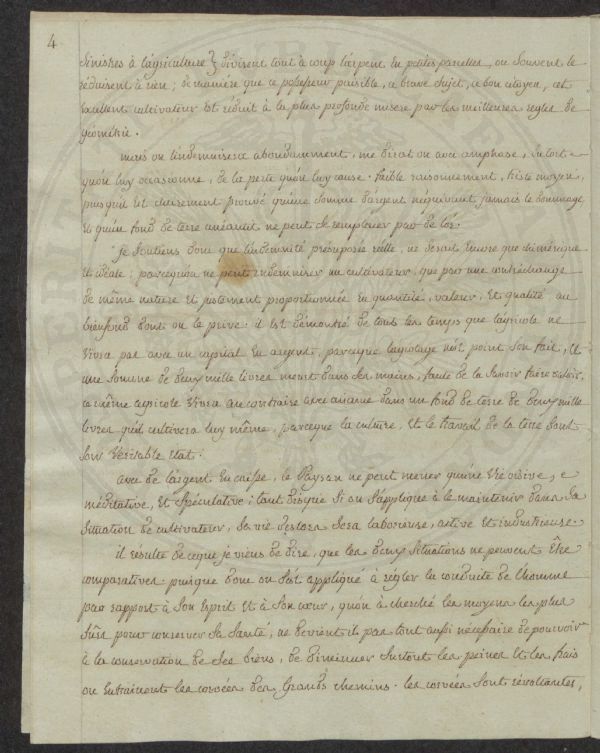 4
sinistres à l'agriculture } divisent tout à coup l'arpent en petites parcelles, ou souvent le
réduisent à rien ; de manière que ce possesseur paisible, ce brave sujet, ce bon citoyen, cet
excellent cultivateur est réduit à la plus profonde misere par les meilleures regles de
géométrie.
mais on l'indemnisera abondamment, me dirat on avec emphase, du tort
qu'on luy occasionne, de la perte qu'on luy cause. faible raisonnement, triste moyen,
puisqu'il est clairement prouvé qu'une somme d'argent n'équivaut jamais le dommage
et qu'un fond de terre anéanti ne peut se remplacer par de l'or.
je soutiens donc que l'indemnité presuposée réelle, ne serait encore que chimérique
et idéale ; parcequ'on ne peut indemniser un cultivateur, que par une contréchange
de même nature et justement proportionnée en quantité, valeur, et qualité au
bienfond dont on le prive. il est démontré de tous les temps que l'agricole ne
vivra pas avec un capital en argent, parceque l'agiotage n'est point son fait, et
une somme de deux mille livres meurt dans ses mains, faute de la savoir faire valoir.
ce même agricole vivra au contraire avec aisance dans un fond de terre de deux mille
livres qu'il cultivera luy même, parceque la culture, et le travail de la terre sont
son véritable état.
avec de l'argent en caisse, le Paysan ne peut mener qu'une vie oisive,
méditative, et spéculative ; tout disque si on s'applique à le maintenir dans sa
situation de cultivateur, sa vie deslors sera laborieuse, active et industrieuse.
il résulte de ceque je viens de dire, que les deux situations ne peuvent être
comparatives puisque donc on s'est appliqué à régler la conduite de l'homme
par rapport à son esprit et à son cœur, qu'on à cherché les moyens les plus
sûrs pour conserver sa santé, ne devient il pas tout aussi nécessaire de pourvoir
à la conservation de ses biens, de diminuer surtout les peines et les frais
ou entrainent les corvées des grands chemins. les corvées sont révoltantes,